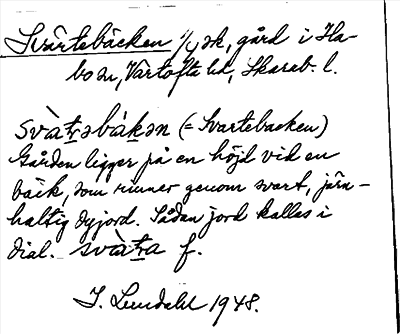 Svartebäcken 1/4 sk, gård i Ha-
bo sn, Vartofta hd, Skarab. l.
svàt̠rəbák̠ən (= Svartebacken)
Gården ligger på en höjd vid en
bäck, som rinner genom svart, järn-
haltig dyjord. Sådan jord kallas i
dial. svàt̠ra f.
I. Lundahl 1948.